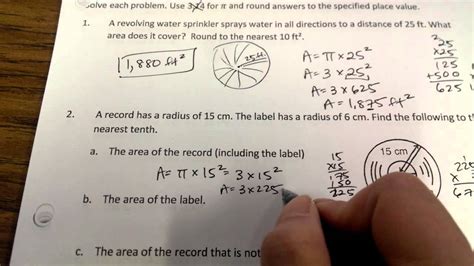 Solve each problem. Use 3.14 for π and round answers to the specified place value.
1. A revolving water sprinkler sprays water in all directions to a distance of 25 ft. What
area does it cover? Round to the nearest 10 ft².
1,880 ft²
25 ft.
A = π × 25²
A = 3 × 25²
A = 3 × 625
A = 1,875 ft²
25
×25
125
+500
625
2. A record has a radius of 15 cm. The label has a radius of 6 cm. Find the following to t
nearest tenth.
a. The area of the record (including the label)
A = π × 15² = 3 × 15²
A = 3 × 225
15
×15
150
225
15 cm
225
67
b. The area of the label.
c. The area of the record that is not